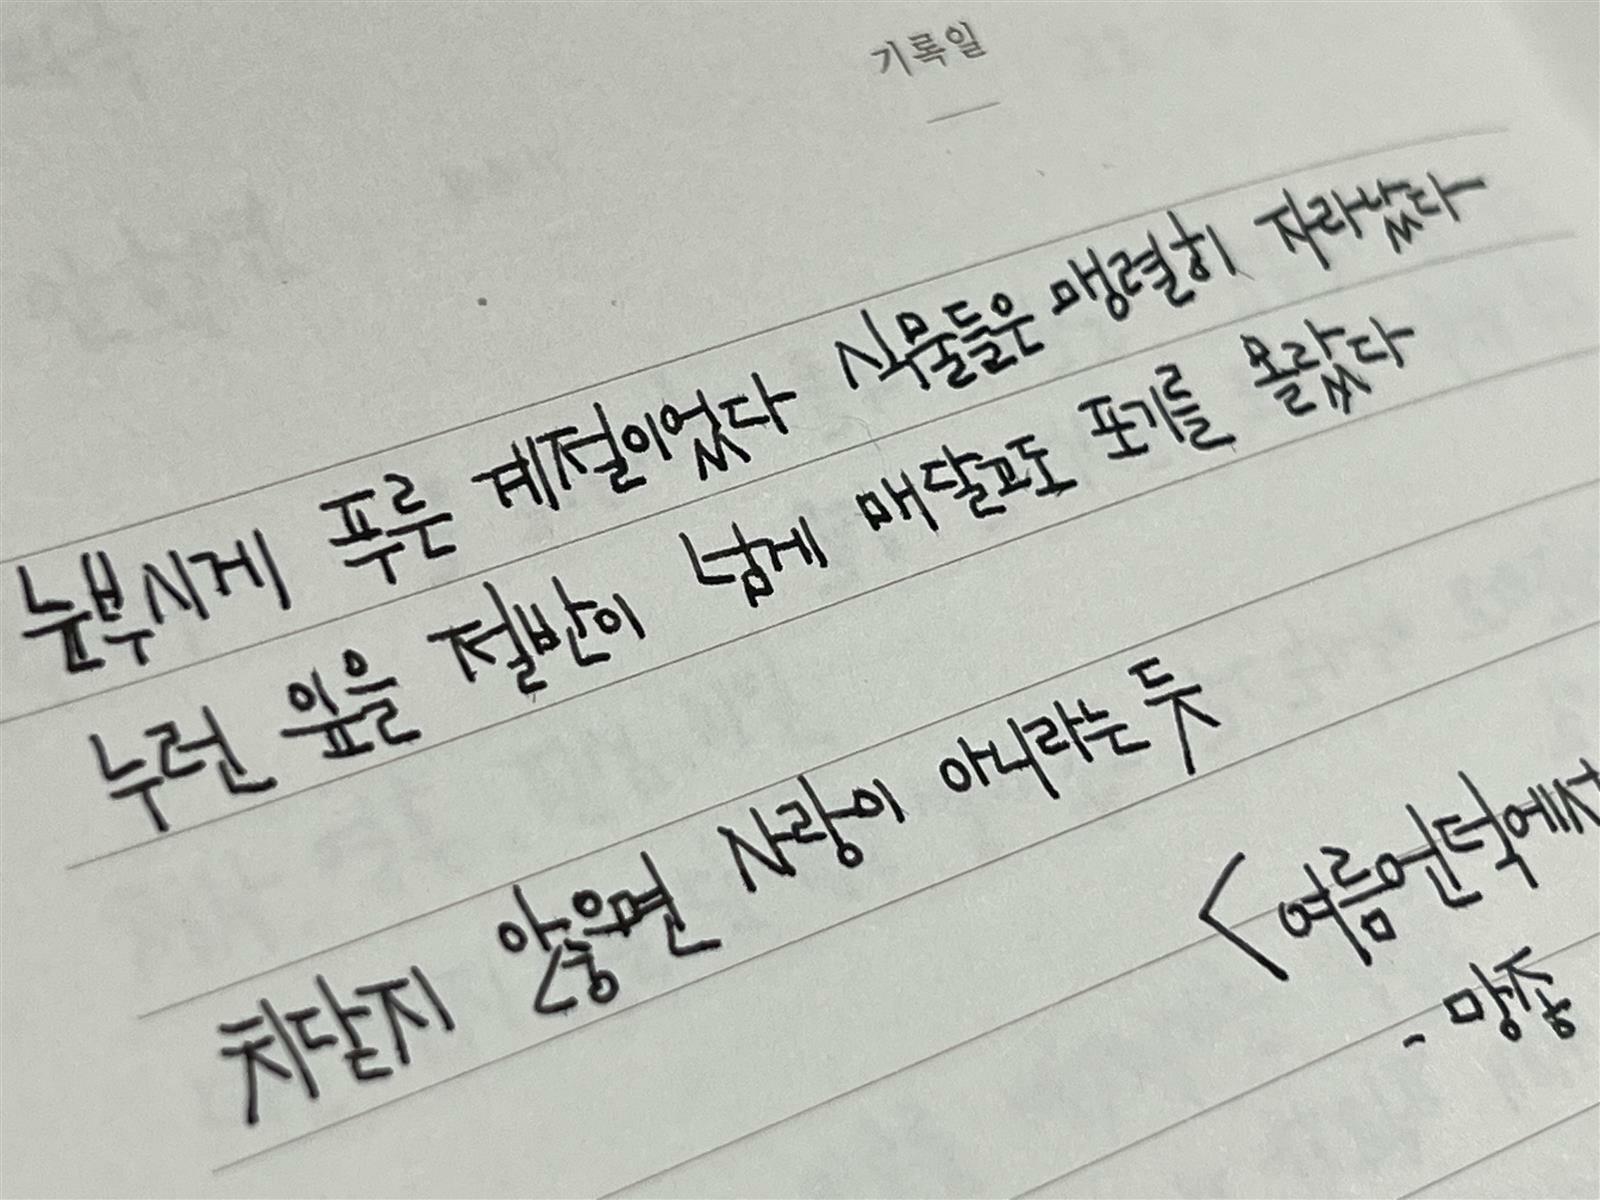 기록일
눈부시게 푸른 계절이었다 식물들은 맹렬히 자라났다
누런 잎을 절반이 넘게 매달고도 포기를 몰랐다
치닫지 않으면 사랑이 아니라는 듯
<여름언덕에서
- 망종